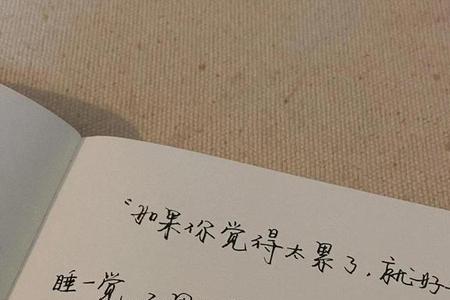 “如果你觉得太累了，就好
睡一觉